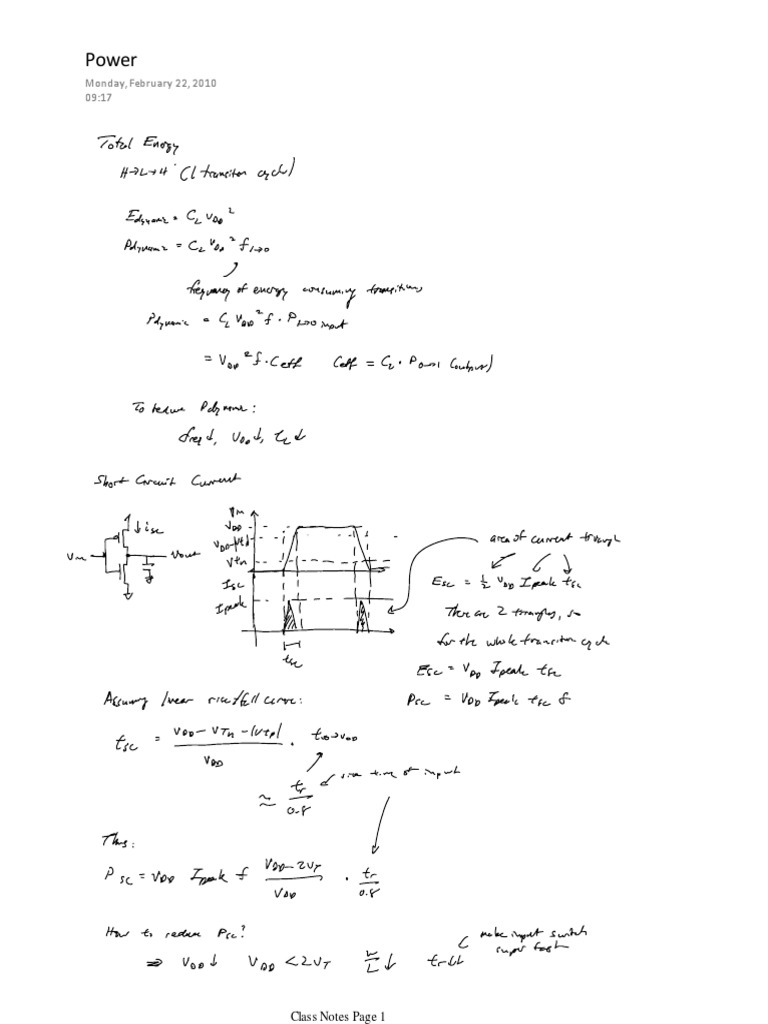 Power
Monday, February 22, 2010
09:17
Total Energy
H→L→H (1 transition cycle)
E dynamic = C_L V_DD^2
P dynamic = C_L V_DD^2 f_1→0
frequency of energy consuming transitions
P dynamic = C_L V_DD^2 f · P_1→0 input
= V_DD^2 f · Ceff Ceff = C_L · P_0→1 (output)
To reduce P dynamic:
freq↓, V_DD↓, C_L↓
Short Circuit Current
↓ isc
Vin
Vout
Vin
V_DD
V_DD-|Vtp|
Vtn
Isc
Ipeak
tsc
area of current through
Esc = 1/2 V_DD Ipeak tsc
There are 2 triangles, so
for the whole transition cycle
Esc = V_DD Ipeak tsc
Psc = V_DD Ipeak tsc f
Assuming linear rise/fall curve:
tsc = (V_DD - VTn - |VTp|) / V_DD · t_0→VDD
≈ tr / 0.8
rise time of input
Thus:
Psc = V_DD Ipeak f (V_DD - 2V_T) / V_DD · tr / 0.8
How to reduce Psc?
⇒ V_DD↓ V_DD < 2V_T W/L ↓ tr↓↓
make input switch
super fast
Class Notes Page 1